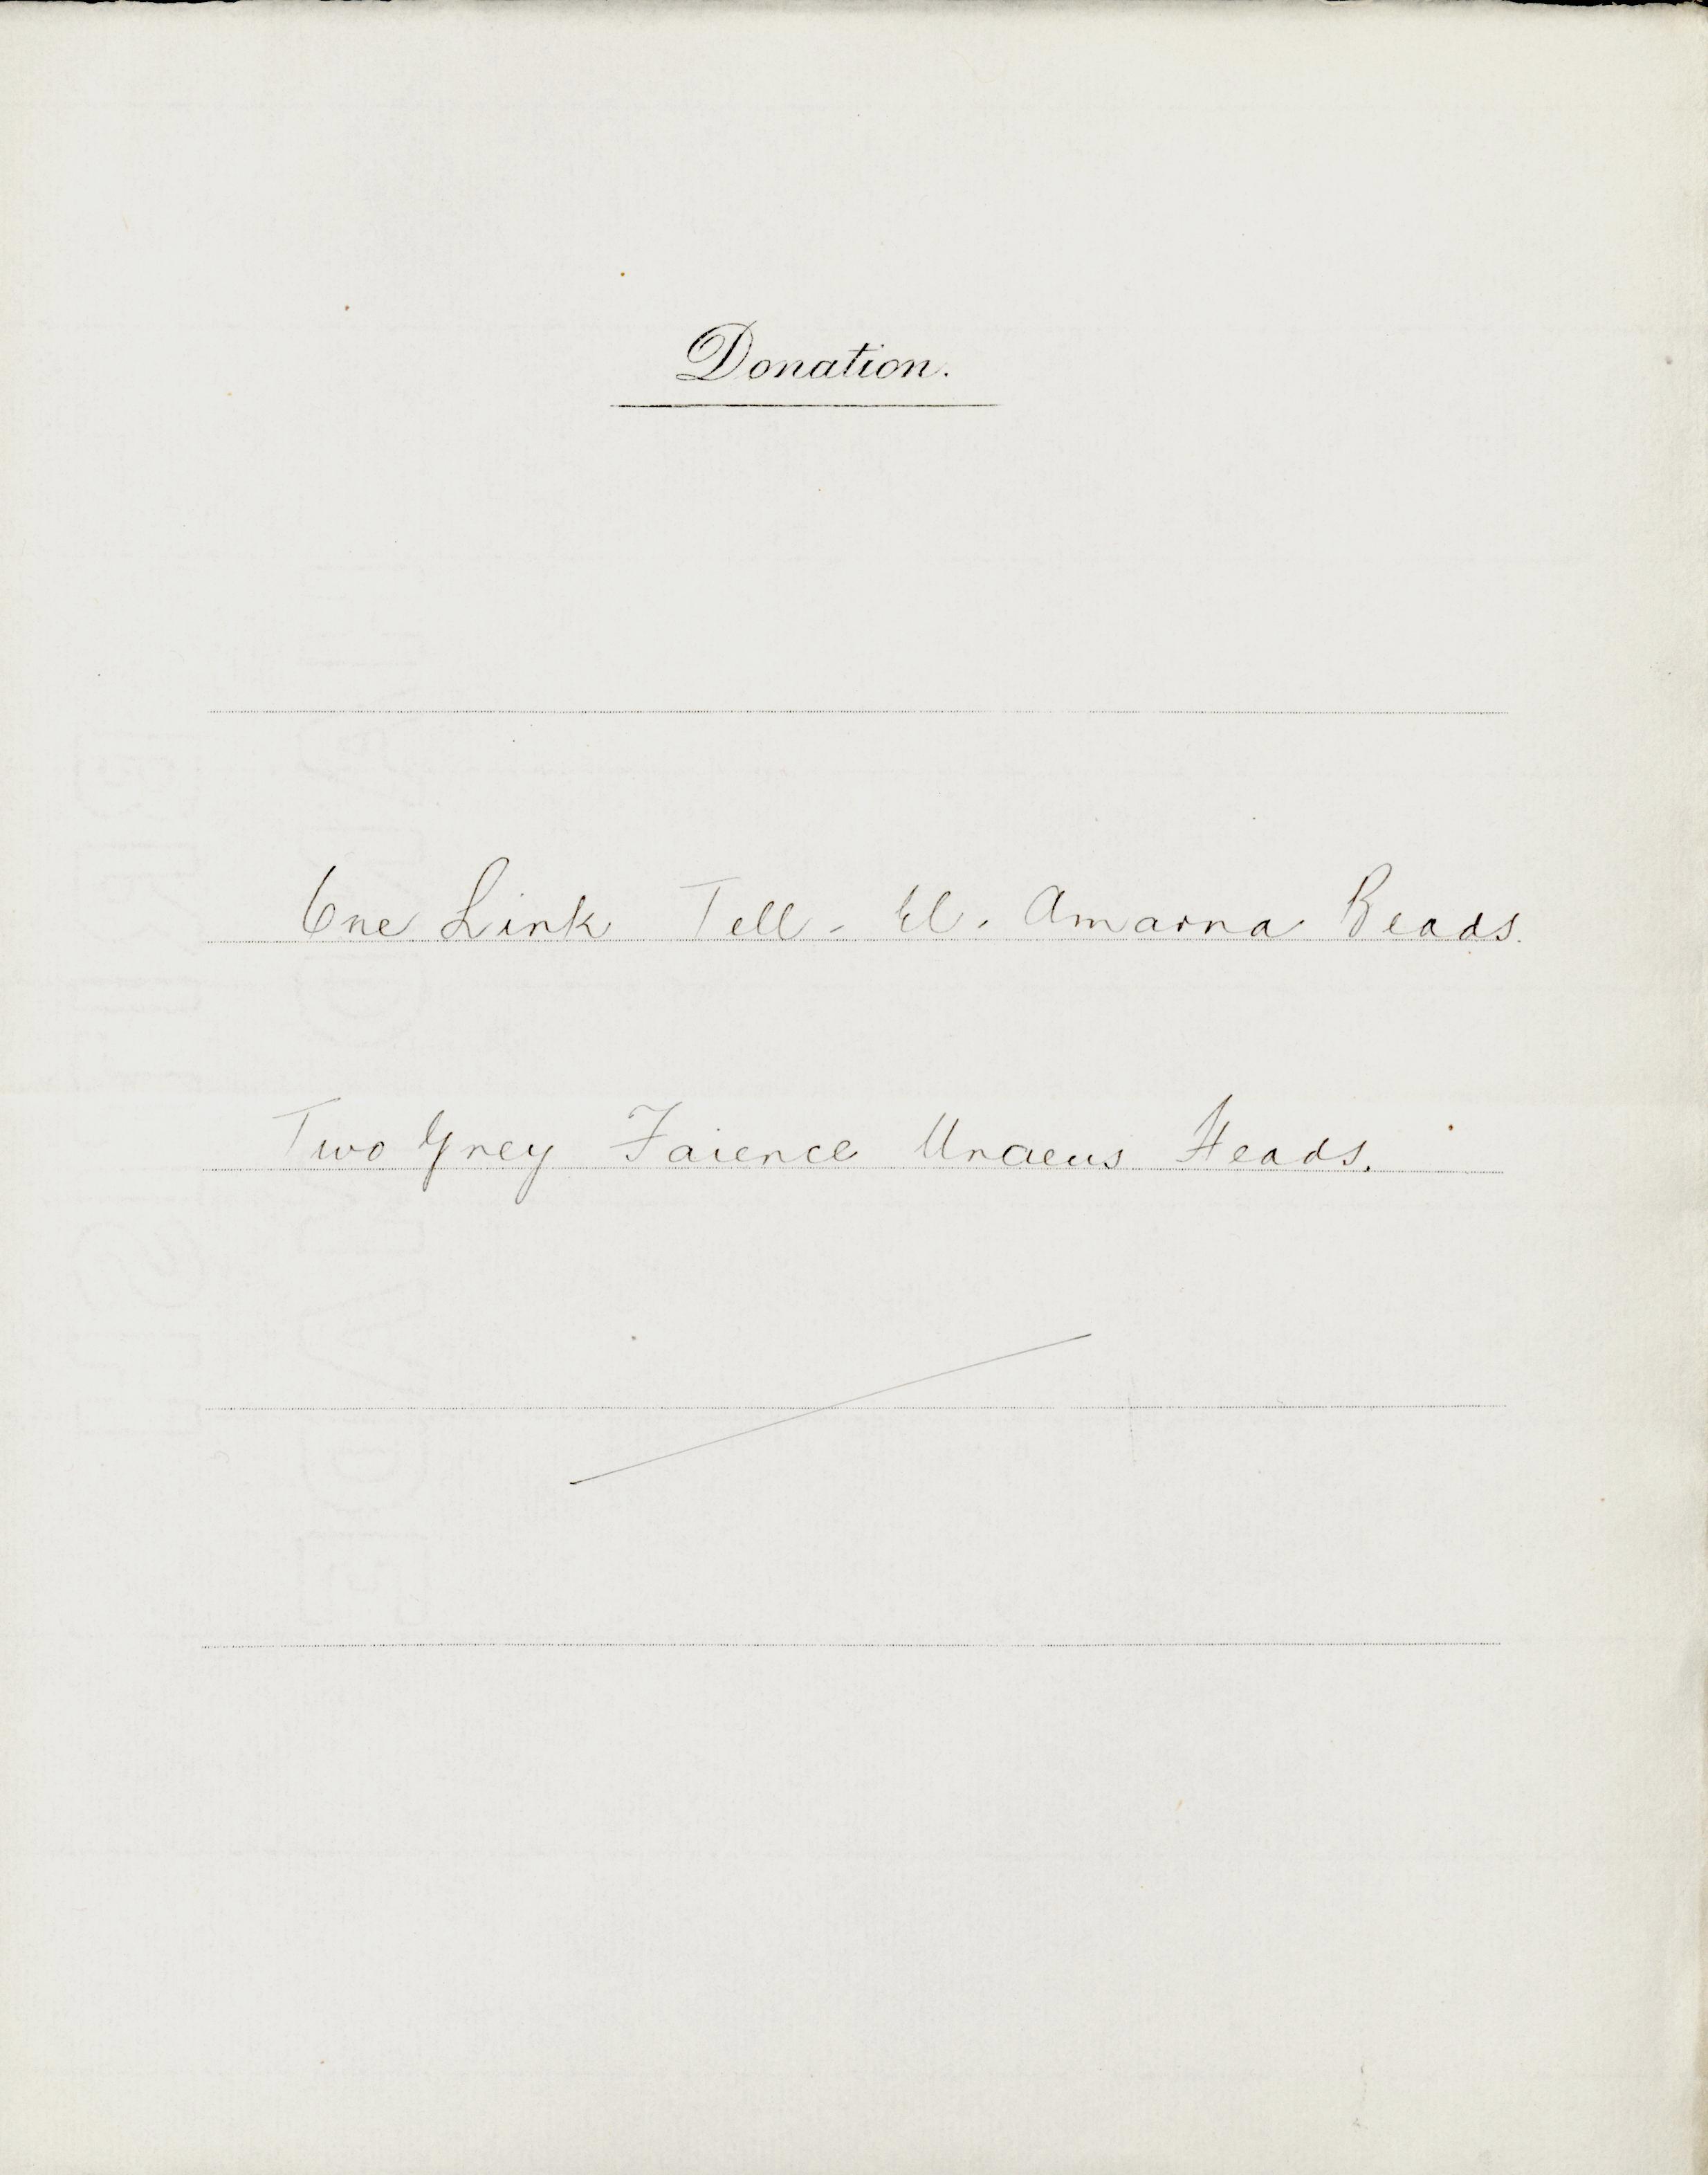 Donation.
One Link Tell - El. Amarna Beads.
Two Grey Faience Uraeus Heads.